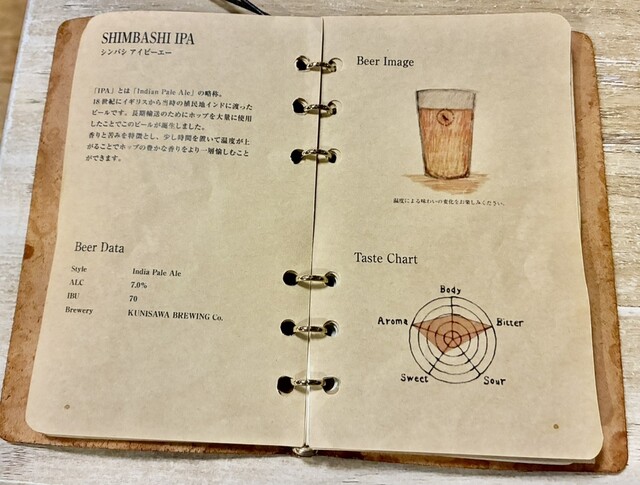 SHIMBASHI IPA
シンバシ アイピーエー
「IPA」とは「Indian Pale Ale」の略称。
18世紀にイギリスから当時の植民地インドに渡った
ビールです。長期輸送のためにホップを大量に使用
したことでこのビールが誕生しました。
香りと苦みを特徴とし、少し時間を置いて温度が上
がることでホップの豊かな香りをより一層愉しむこと
ができます。
Beer Data
Style India Pale Ale
ALC 7.0%
IBU 70
Brewery KUNISAWA BREWING Co.
Beer Image
温度による味わいの変化をお楽しみください。
Taste Chart
Body
Aroma Bitter
Sweet Sour